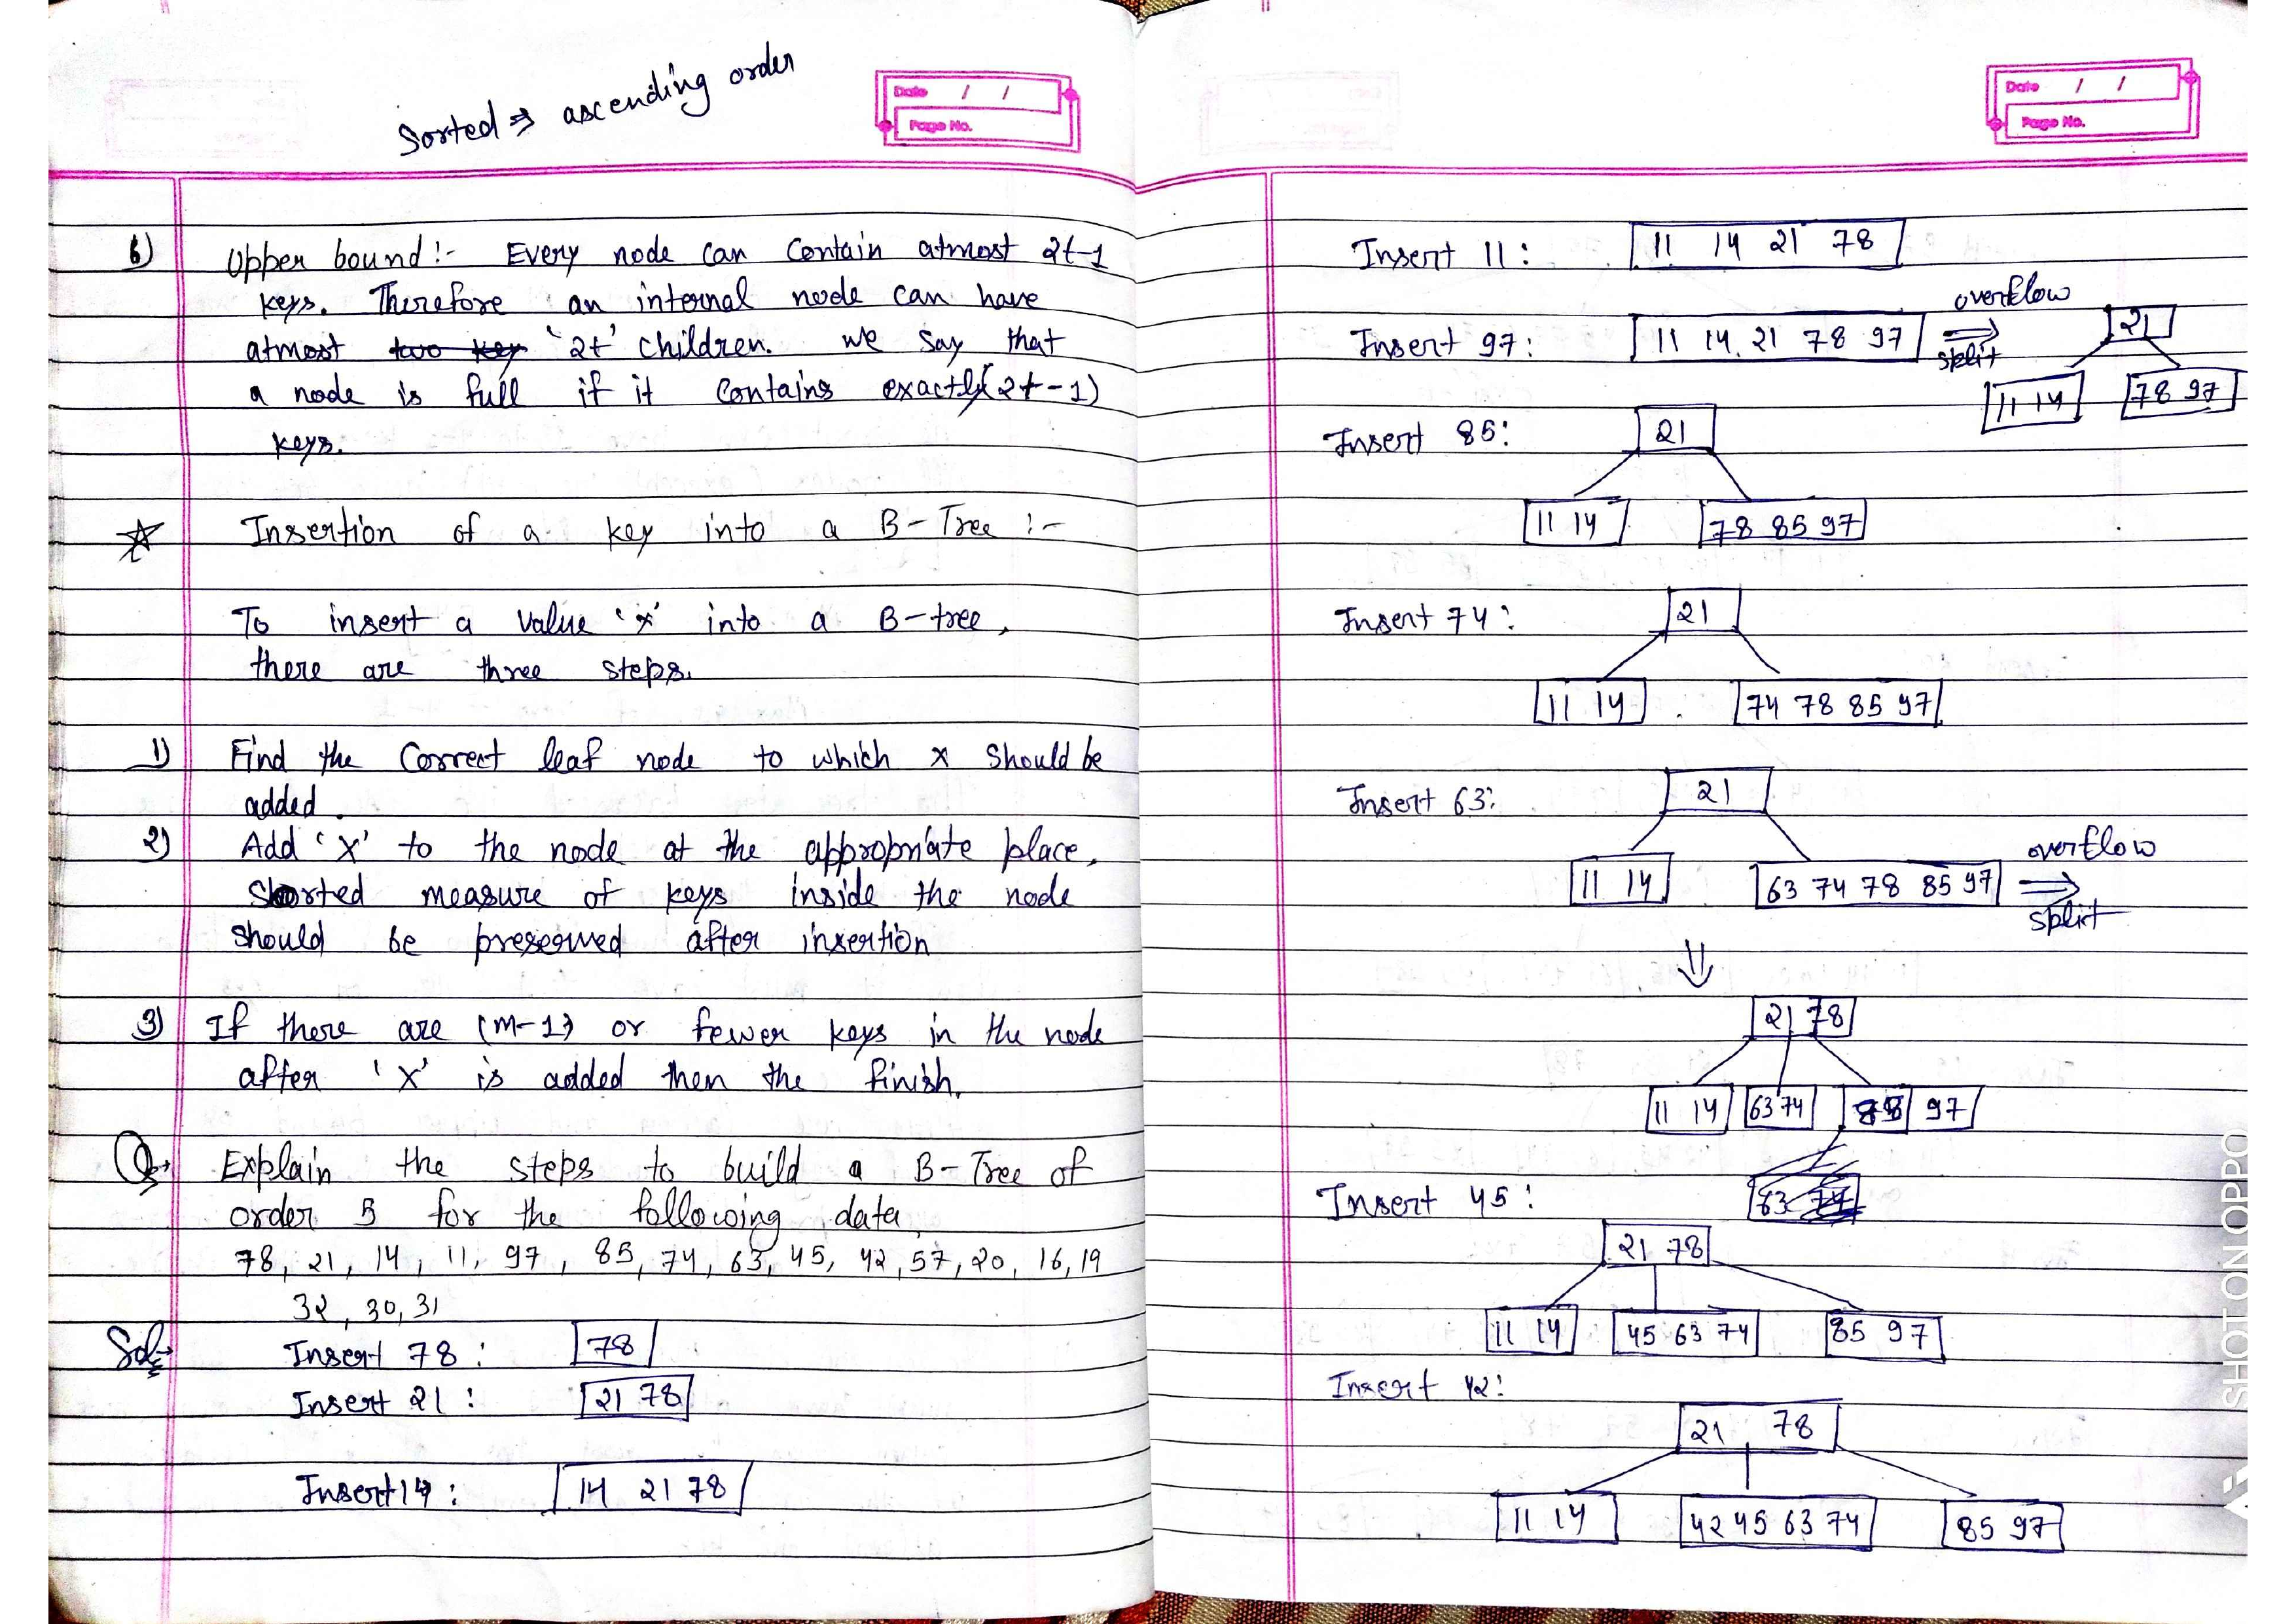 Sorted ⇒ ascending order
Date / /
Page No.
6) Upper bound:- Every node can contain atmost 2t-1
keys. Therefore an internal node can have
atmost two key '2t' children. we say that
a node is full if it contains exactly (2t-1)
keys.
Insertion of a key into a B-Tree :-
To insert a value 'x' into a B-tree,
there are three steps.
1) Find the correct leaf node to which x should be
added.
2) Add 'x' to the node at the appropriate place,
Sorted measure of keys inside the node
should be preserved after insertion
3) If there are (m-1) or fewer keys in the node
after 'x' is added then the finish.
Q→ Explain the steps to build a B-Tree of
order 5 for the following data
78, 21, 14, 11, 97, 85, 74, 63, 45, 42, 57, 20, 16, 19
32, 30, 31
Sol→ Insert 78: 78
Insert 21: 21 78
Insert 14: 14 21 78
Date / /
Page No.
Insert 11: 11 14 21 78
overflow
Insert 97: 11 14 21 78 97 ⇒ 21
split
11 14 78 97
Insert 85: 21
11 14 78 85 97
Insert 74: 21
11 14 74 78 85 97
Insert 63: 21
overflow
11 14 63 74 78 85 97 ⇒
split
⇓
21 78
11 14 63 74 97
Insert 45: 63
21 78
11 14 45 63 74 85 97
Insert 42:
21 78
11 14 42 45 63 74 85 97
SHOT ON OPPO